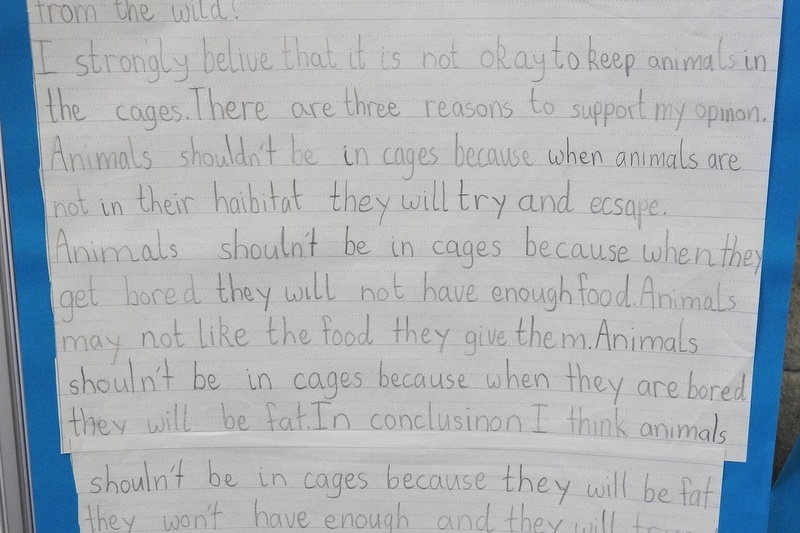 from the wild?
I strongly belive that it is not okay to keep animals in
the cages. There are three reasons to support my opinon.
Animals shouldn't be in cages because when animals are
not in their haibitat they will try and ecsape.
Animals shouln't be in cages because when they
get bored they will not have enough food. Animals
may not like the food they give them. Animals
shouln't be in cages because when they are bored
they will be fat. In conclusinon I think animals
shouln't be in cages because they will be fat
they won't have enough and they will